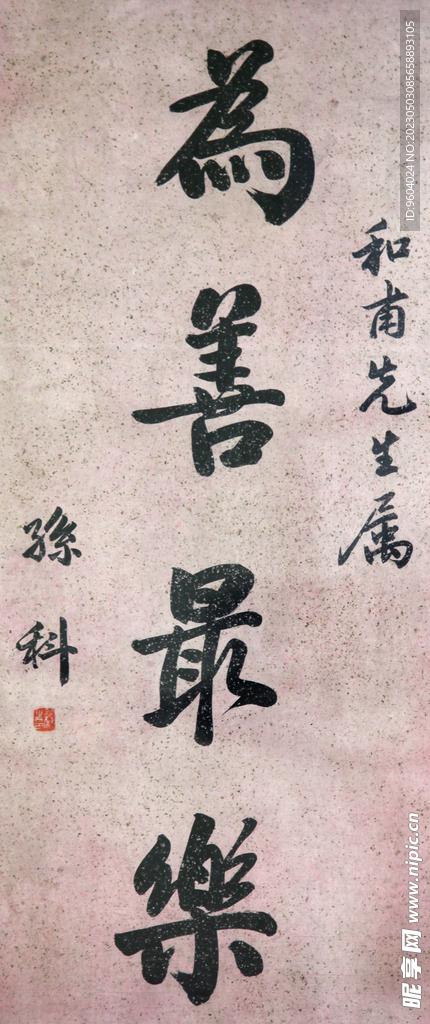 和甫先生属
為善最樂
孫科
ID:9604024 NO:20230503085658893105
昵享网 www.nipic.cn